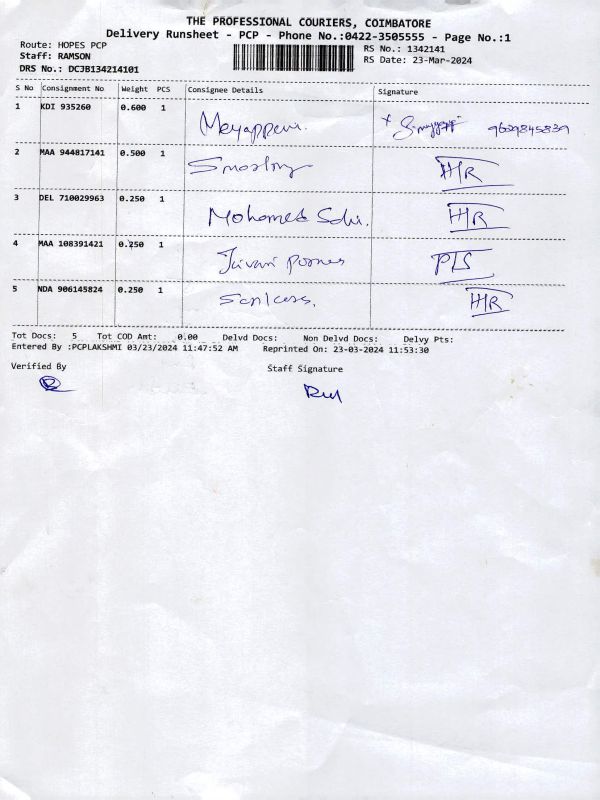 THE PROFESSIONAL COURIERS, COIMBATORE
Delivery Runsheet - PCP - Phone No.:0422-3505555 - Page No.:1
Route: HOPES PCP RS No.: 1342141
Staff: RAMSON RS Date: 23-Mar-2024
DRS No.: DCJB134214101
S No Consignment No Weight PCS Consignee Details Signature
1 KDI 935260 0.600 1 Meyappan. 9629845839
2 MAA 944817141 0.500 1 HR
3 DEL 710029963 0.250 1 Mohamed HR
4 MAA 108391421 0.250 1 PTS
5 NDA 906145824 0.250 1 HR
Tot Docs: 5 Tot COD Amt: 0.00 Delvd Docs: Non Delvd Docs: Delvy Pts:
Entered By :PCPLAKSHMI 03/23/2024 11:47:52 AM Reprinted On: 23-03-2024 11:53:30
Verified By Staff Signature